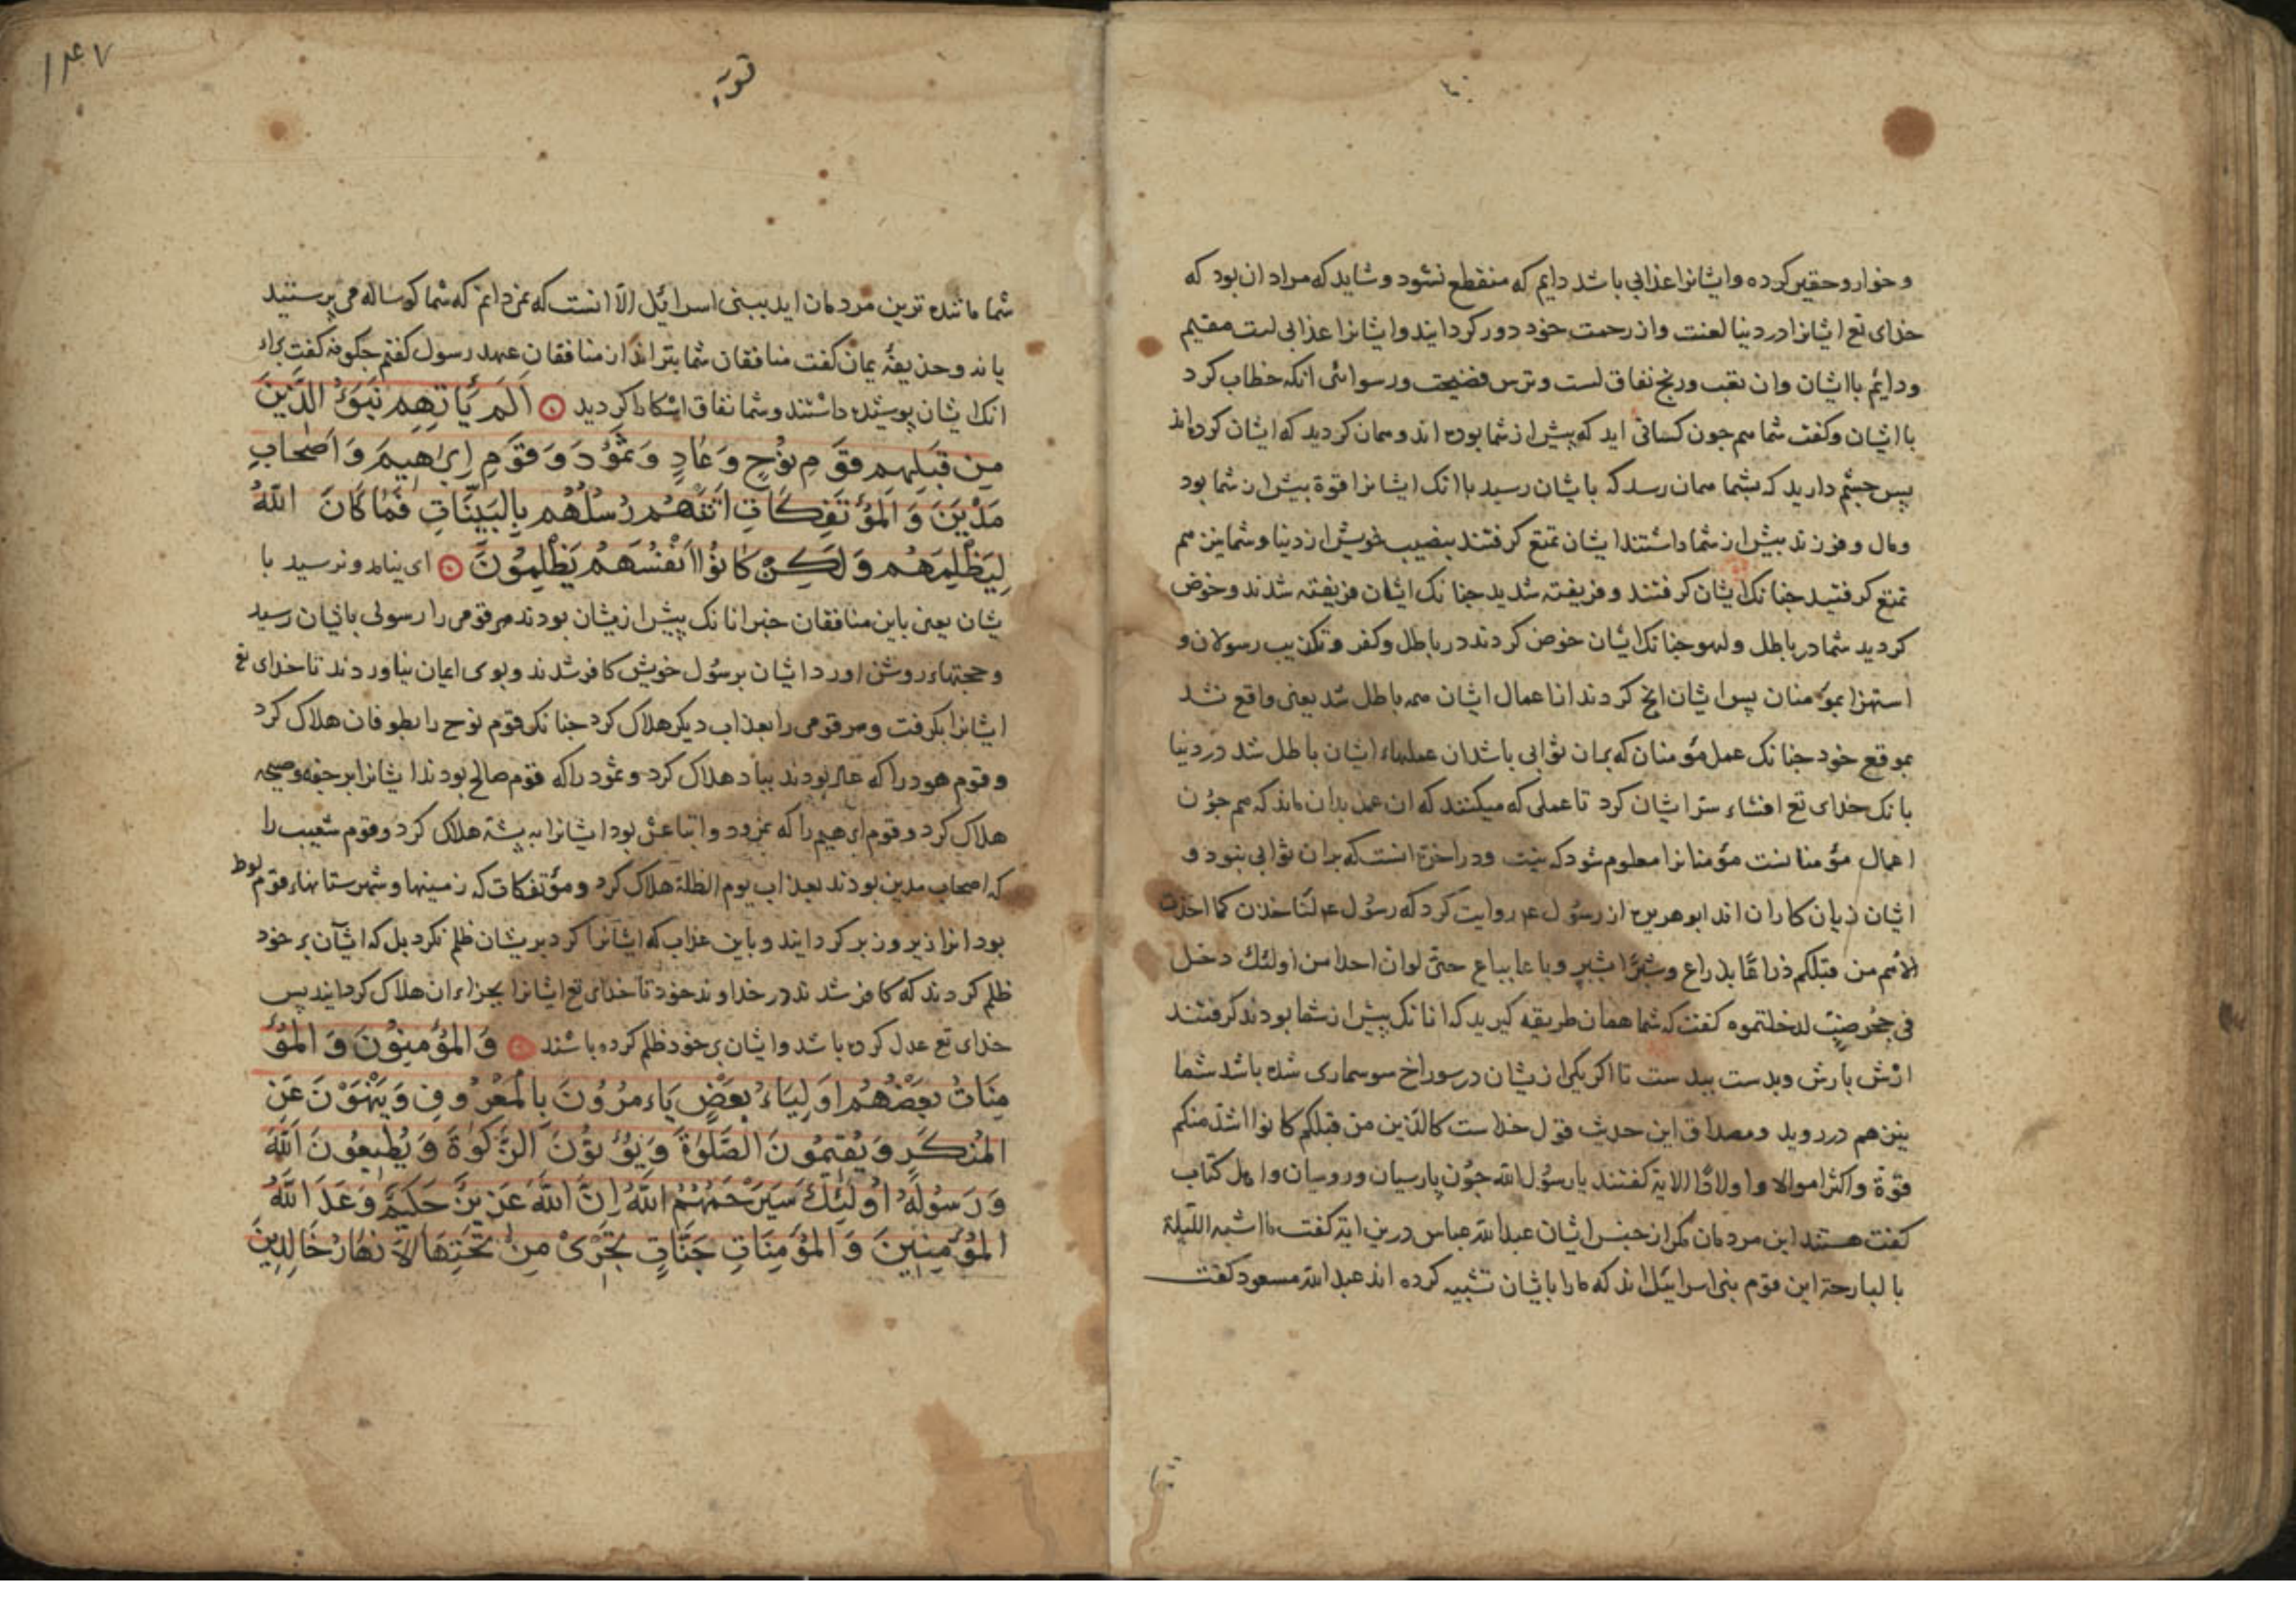 و خوار و حقیر کرده و ایشانرا عذابی باشد دایم که منقطع نشود و شاید که مراد ان بود که
خدای تع ایشانرا در دنیا لعنت و از رحمت خود دور کردایند و ایشانرا عذابی است مقیم
و دایم با ایشان و ان تعب و رنج نفاق است و ترس فضیحت و رسوائی انکه خطاب کرد
با ایشان و کفت شما هم جون کسانی اید که بیش از شما بوده اند و همان کردید که ایشان کرده اند
پس جشم دارید که بشما همان رسد که بایشان رسید با انک ایشانرا قوة بیش از شما بود
و مال و فرزند بیش از شما داشتند ایشان تمتع کرفتند بنصیب خویش از دنیا و شما نیز هم
تمتع کرفتید جنانک ایشان کرفتند و فریفته شدید جنانک ایشان فریفته شدند و خوض
کردید شما در باطل و لهو جنانک ایشان خوض کردند در باطل و کفر و تکذیب رسولان و
استهزا بمؤمنان پس ایشان انج کردند از اعمال ایشان همه باطل شد یعنی واقع نشد
بموقع خود جنانک عمل مؤمنان که بران ثوابی باشد ان عملهاء ایشان باطل شد در دنیا
بانک خدای تع افشاء ستر ایشان کرد تا عملی که میکنند که ان عمل بدان ماند که هم جون
اعمال مؤمنانست مؤمنانرا معلوم شود که نیت و در اخرة انست که بران ثوابی نبود و
ایشان زیان کاران اند ابو هریره از رسول ع روایت کرد که رسول ع لتاخذن کما اخذت
الامم من قبلکم ذراعا بذراع و شبرا بشبر و باعا بباع حتی لو ان احدا من اولئک دخل
فی جحر ضب لدخلتموه کفت که شما همان طریقه کیرید که انانک پیش از شما بودند کرفتند
ارش بارش و بدست ببدست تا اکر یکی ازیشان در سوراخ سوسماری شده باشد شما
نیز هم در روید و مصداق این حدیث قول خداست کالذین من قبلکم کانوا اشد منکم
قوة و اکثر اموالا و اولادا الایة کفتند یا رسول الله جون پارسیان و رومیان و اهل کتاب
کفت هستند این مردمان مکر از جنس ایشان عبدالله عباس درین ایة کفت ما اشبه اللیلة
بالبارحة این قوم بنی اسرائیل اند که ما را بایشان تشبیه کرده اند عبدالله مسعود کفت
۱۴۷
توبه
شما ماننده ترین مردمان اید ببنی اسرائیل الا انست که نمی دانم که شما کوساله می پرستید
یا نه و حذیفه یمان کفت منافقان شما بتر اند از منافقان عهد رسول کفتم جکونه کفت برای
انک ایشان پوشیده داشتند و شما نفاق اشکارا کردید اَلَمْ یَأْتِهِمْ نَبَؤُ الَّذِینَ
مِن قَبْلِهِم قَوْمِ نُوْحٍ وَ عَادٍ وَ ثَمُوْدَ وَ قَوْمِ اِبْرٰهِیمَ وَ اَصْحَابِ
مَدْیَنَ وَ الْمُؤْتَفِکَاتِ اَتَتْهُمْ رُسُلُهُمْ بِالْبَیِّنَاتِ فَمَا کَانَ اللّٰهُ
لِیَظْلِمَهُم وَلَکِنْ کَانُوْا اَنْفُسَهُمْ یَظْلِمُوْنَ ای نیامد و نرسید با
یشان یعنی باین منافقان خبر انانک پیش ازیشان بودند هر قومی را رسولی بایشان رسید
و حجتهاء روشن اورد ایشان برسول خویش کافر شدند و بوی ایمان نیاوردند تا خدای تع
ایشانرا بکرفت و هر قومی را بعذاب دیکر هلاک کرد جنانک قوم نوح را بطوفان هلاک کرد
و قوم هود را که عاد بودند بباد هلاک کرد و ثمود را که قوم صالح بودند ایشانرا برجفه و صیحه
هلاک کرد و قوم ابرهیم را که نمرود و اتباعش بود ایشانرا به پشه هلاک کرد و قوم شعیب را
که اصحاب مدین بودند بعذاب یوم الظلة هلاک کرد و مؤتفکات که زمینها و شهرستانهاء قوم لوط
بود انرا زیر و زبر کردایند و باین عذاب که ایشانرا کرد بریشان ظلم نکرد بل که ایشان بر خود
ظلم کردند که کافر شدند در خداوند خود تا خدای تع ایشانرا بجزاء ان هلاک کردایند پس
خدای تع عدل کرده باشد و ایشان بر خود ظلم کرده باشند وَالْمُؤْمِنُوْنَ وَ الْمُؤْ
مِنَاتُ بَعْضُهُمْ اَوْلِیَاءُ بَعْضٍ یَاءْمُرُوْنَ بِالْمَعْرُوفِ وَ یَنْهَوْنَ عَنِ
الْمُنْکَرِ وَ یُقِیمُونَ الصَّلٰوةَ وَ یُؤْتُوْنَ الزَّکٰوةَ وَ یُطِیعُونَ اللّٰهَ
وَ رَسُوْلَهُ اُولٰئِکَ سَیَرْحَمُهُمُ اللّٰهُ اِنَّ اللّٰهَ عَزِیزٌ حَکِیمٌ وَعَدَ اللّٰهُ
الْمُؤْمِنِینَ وَ الْمُؤْمِنَاتِ جَنَّاتٍ تَجْرِیْ مِنْ تَحْتِهَا الْاَنْهَارُ خَالِدِینَ